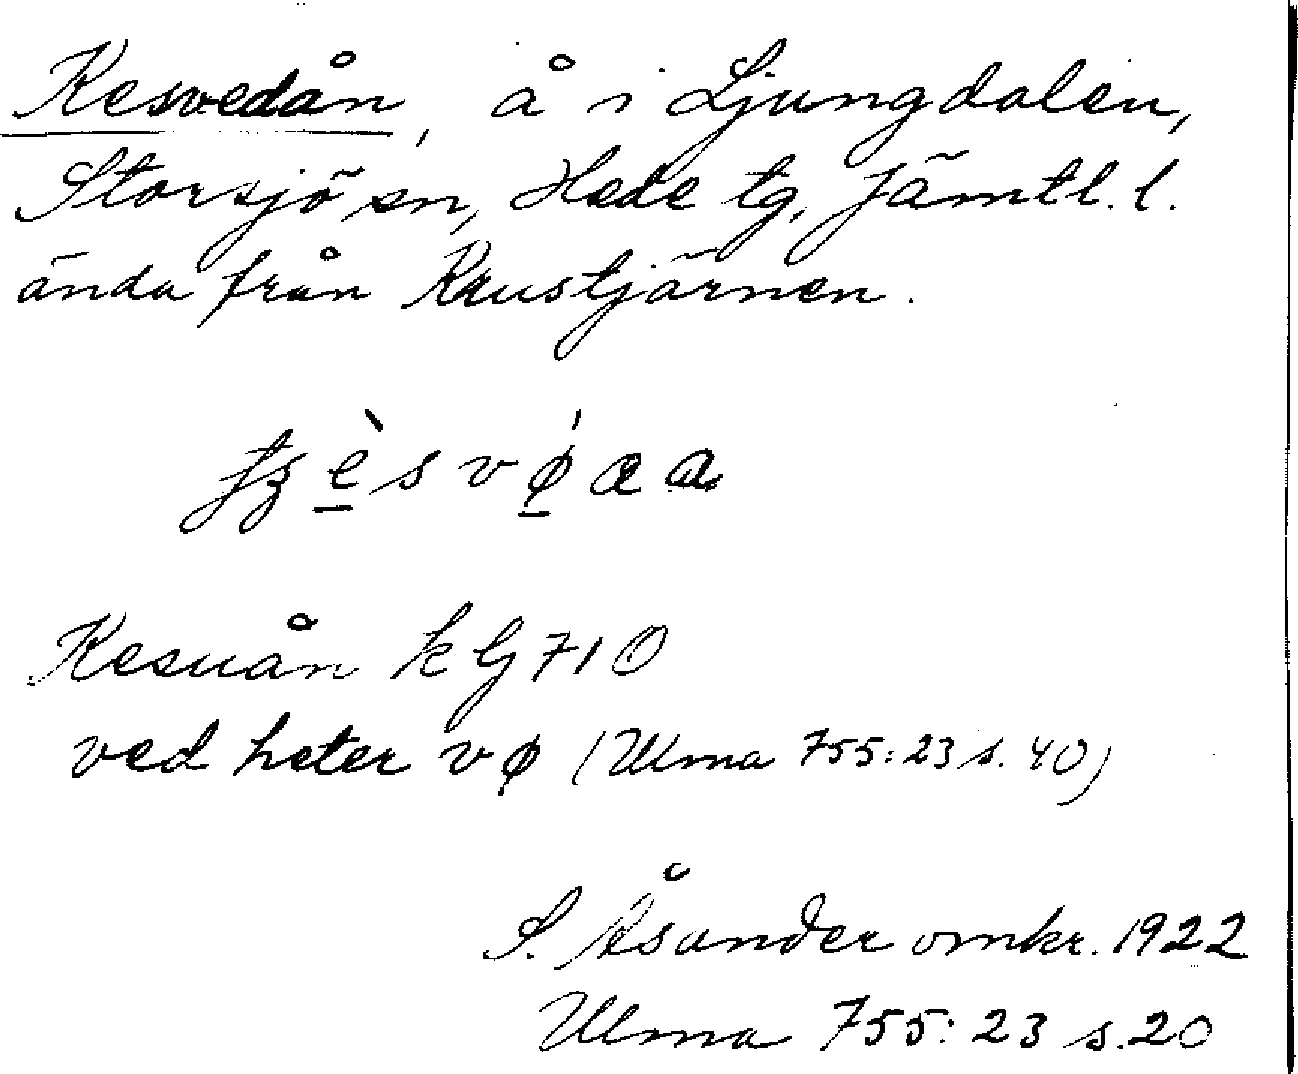 Kesvedån, å i Ljungdalen,
Storsjö sn, Hede tg, Jämtl. l.
ända från Kraustjärnen.
Kesuån kG710
ved heter vø (Ulma 755:23 s. 40)
S. Åsander omkr. 1922
Ulma 755:23 s. 20